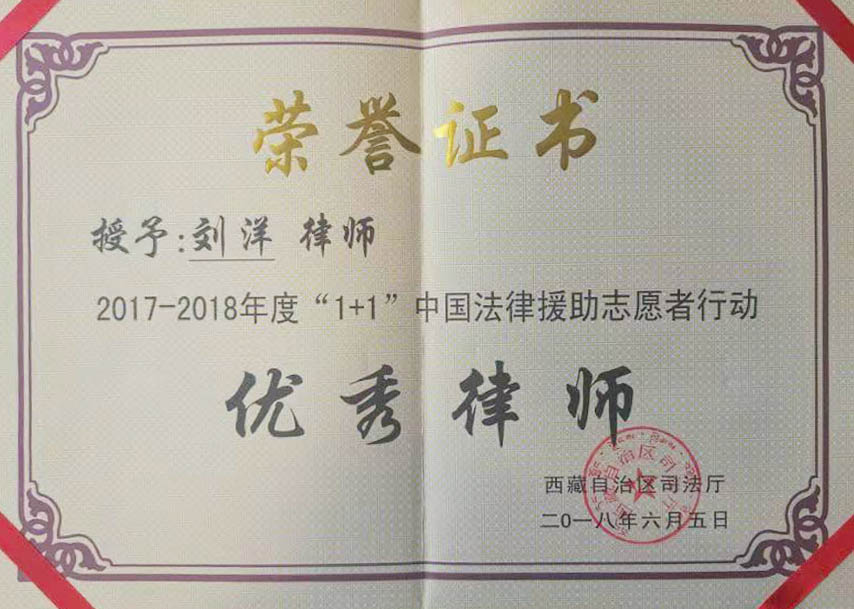 荣誉证书
授予:刘洋 律师
2017-2018年度“1+1”中国法律援助志愿者行动
优秀律师
西藏自治区司法厅
二0一八年六月五日
西藏自治区司法厅